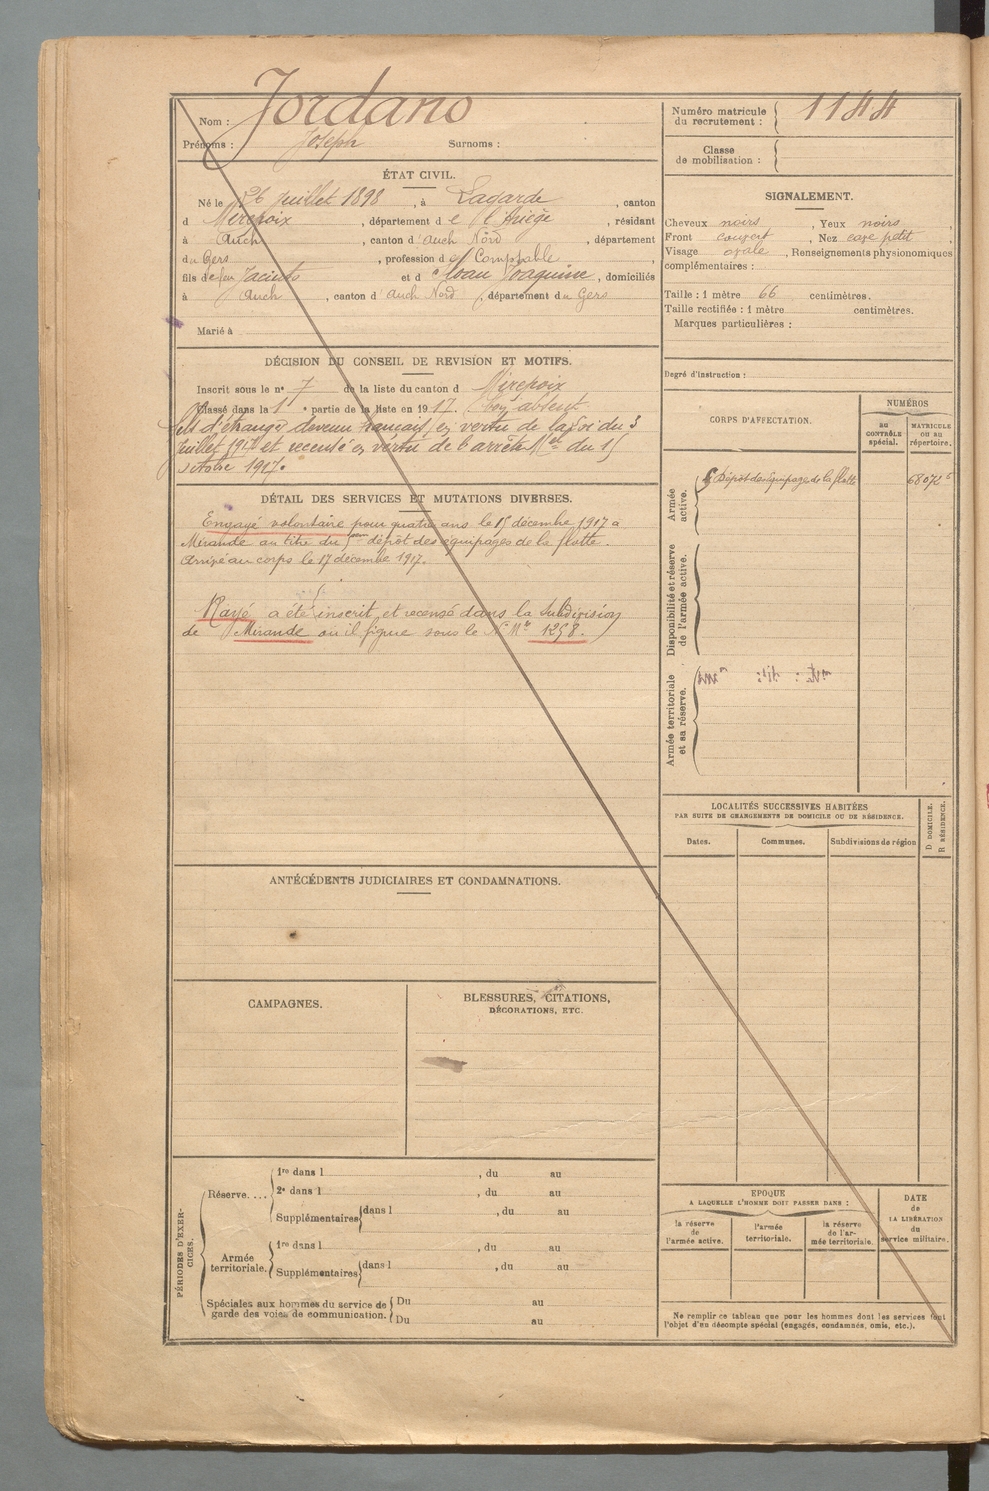 Nom : Jordano
Prénoms : Joseph Surnoms :
Numéro matricule du recrutement : 1144
Classe de mobilisation :
ÉTAT CIVIL.
Né le 26 juillet 1898, à Lagarde, canton
d Mirepoix, département de l'Ariège, résidant
à Auch, canton d'Auch Nord, département
du Gers, profession de Comptable,
fils de feu Jacinto et d Joaquine, domiciliés
à Auch, canton d Auch Nord, département du Gers
Marié à
SIGNALEMENT.
Cheveux noirs, Yeux noirs,
Front couvert, Nez cave petit,
Visage ovale, Renseignements physionomiques
complémentaires :
Taille : 1 mètre 66 centimètres.
Taille rectifiée : 1 mètre centimètres.
Marques particulières :
Degré d'instruction :
DÉCISION DU CONSEIL DE REVISION ET MOTIFS.
Inscrit sous le n° 7 de la liste du canton d Mirepoix
Classé dans la 1e partie de la liste en 1917. Bon absent
fils d'étranger devenu français en vertu de la loi du 3
juillet 1917 et recensé en vertu de l'arrêté Mel du 15
octobre 1917.
DÉTAIL DES SERVICES ET MUTATIONS DIVERSES.
Engagé volontaire pour quatre ans le 15 décembre 1917 à
Mirande au titre du 5eme dépôt des équipages de la flotte.
Arrivé au corps le 17 décembre 1917.
Rayé, a été inscrit et recensé dans la Subdivision
de Mirande où il figure sous le N° Mle 1258.
CORPS D'AFFECTATION.
NUMÉROS
AU CONTRÔLE spécial.
MATRICULE OU AU répertoire.
Armée active.
Dépôt des équipages de la flotte 68072
Disponibilité et réserve de l'armée active.
Armée territoriale et sa réserve.
LOCALITÉS SUCCESSIVES HABITÉES
PAR SUITE DE CHANGEMENTS DE DOMICILE OU DE RÉSIDENCE.
Dates. Communes. Subdivisions de région
D DOMICILE.
R RÉSIDENCE.
ANTÉCÉDENTS JUDICIAIRES ET CONDAMNATIONS.
CAMPAGNES.
BLESSURES, CITATIONS,
DÉCORATIONS, ETC.
PÉRIODES D'EXERCICES.
Réserve....
1re dans l , du au
2e dans l , du au
Supplémentaires dans l , du au
Armée territoriale.
1re dans l , du au
Supplémentaires dans l , du au
Spéciales aux hommes du service de garde des voies de communication.
Du au
Du au
EPOQUE
A LAQUELLE L'HOMME DOIT PASSER DANS :
la réserve de l'armée active.
l'armée territoriale.
la réserve de l'armée territoriale.
DATE de LA LIBÉRATION du service militaire.
Ne remplir ce tableau que pour les hommes dont les services font
l'objet d'un décompte spécial (engagés, condamnés, omis, etc.).